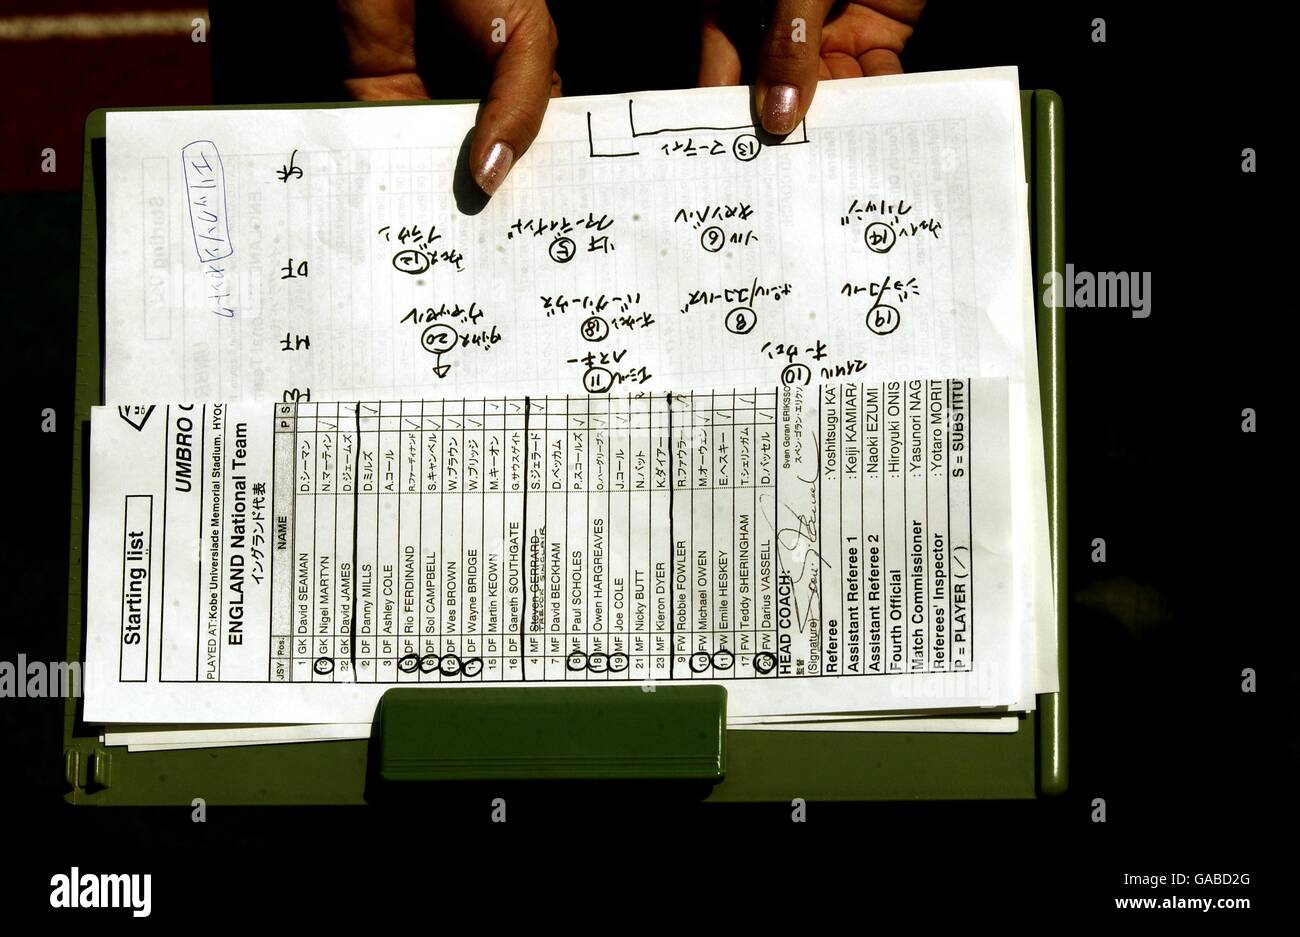 Starting list
UMBRO C
PLAYED AT:Kobe Universiade Memorial Stadium, HYOG
ENGLAND National Team
イングランド代表
JSY Pos. NAME P S
1 GK David SEAMAN D.シーマン
13 GK Nigel MARTYN N.マーティン ✓
22 GK David JAMES D.ジェームズ ✓
2 DF Danny MILLS D.ミルズ ✓
3 DF Ashley COLE A.コール
5 DF Rio FERDINAND R.ファーディナンド ✓
6 DF Sol CAMPBELL S.キャンベル ✓
12 DF Wes BROWN W.ブラウン ✓
14 DF Wayne BRIDGE W.ブリッジ ✓
15 DF Martin KEOWN M.キーオン ✓
16 DF Gareth SOUTHGATE G.サウスゲイト ✓
4 MF Steven GERRARD S.ジェラード ✓
TREVOR SINCLAIR
7 MF David BECKHAM D.ベッカム
8 MF Paul SCHOLES P.スコールズ ✓
18 MF Owen HARGREAVES O.ハーグリーブス ✓
19 MF Joe COLE J.コール ✓
21 MF Nicky BUTT N.バット
23 MF Kieron DYER K.ダイアー
9 FW Robbie FOWLER R.ファウラー
10 FW Michael OWEN M.オーウェン ✓
11 FW Emile HESKEY E.ヘスキー ✓
17 FW Teddy SHERINGHAM T.シェリンガム
20 FW Darius VASSELL D.バッセル ✓
HEAD COACH: Sven Goran ERIKSSO
監督 スベン・ゴラン・エリクソ
(Signature)
Referee : Yoshitsugu KA
Assistant Referee 1 : Keiji KAMIARA
Assistant Referee 2 : Naoki EZUMI
Fourth Official : Hiroyuki ONIS
Match Commissioner : Yasunori NAG
Referees' Inspector : Yotaro MORIT
P = PLAYER ( ✓ ) S = SUBSTITU
DF
MF
13 マーティン
12 ウェズ ブラウン
5 リオ ファーディナンド
6 ソル キャンベル
14 ウェイン ブリッジ
20 ダリウス ヴァッセル
18 オーウェン ハーグリーヴス
8 ポール/スコールズ
19 ジョー/コール
11 エミール ヘスキー
10 マイケル オーウェン
alamy
alamy
Image ID: GABD2G
www.alamy.com